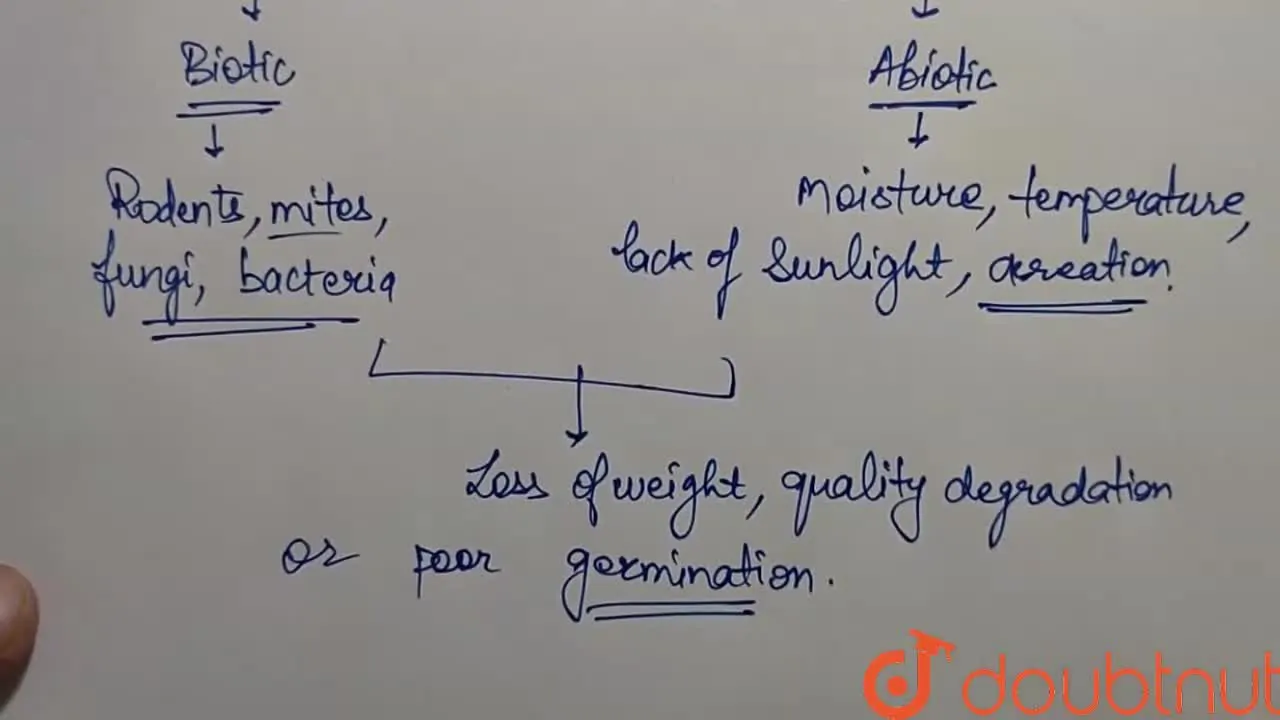 Biotic
Abiotic
Rodents, mites,
fungi, bacteria
Moisture, temperature,
lack of Sunlight, aereation.
Loss of weight, quality degradation
or poor germination.
doubtnut